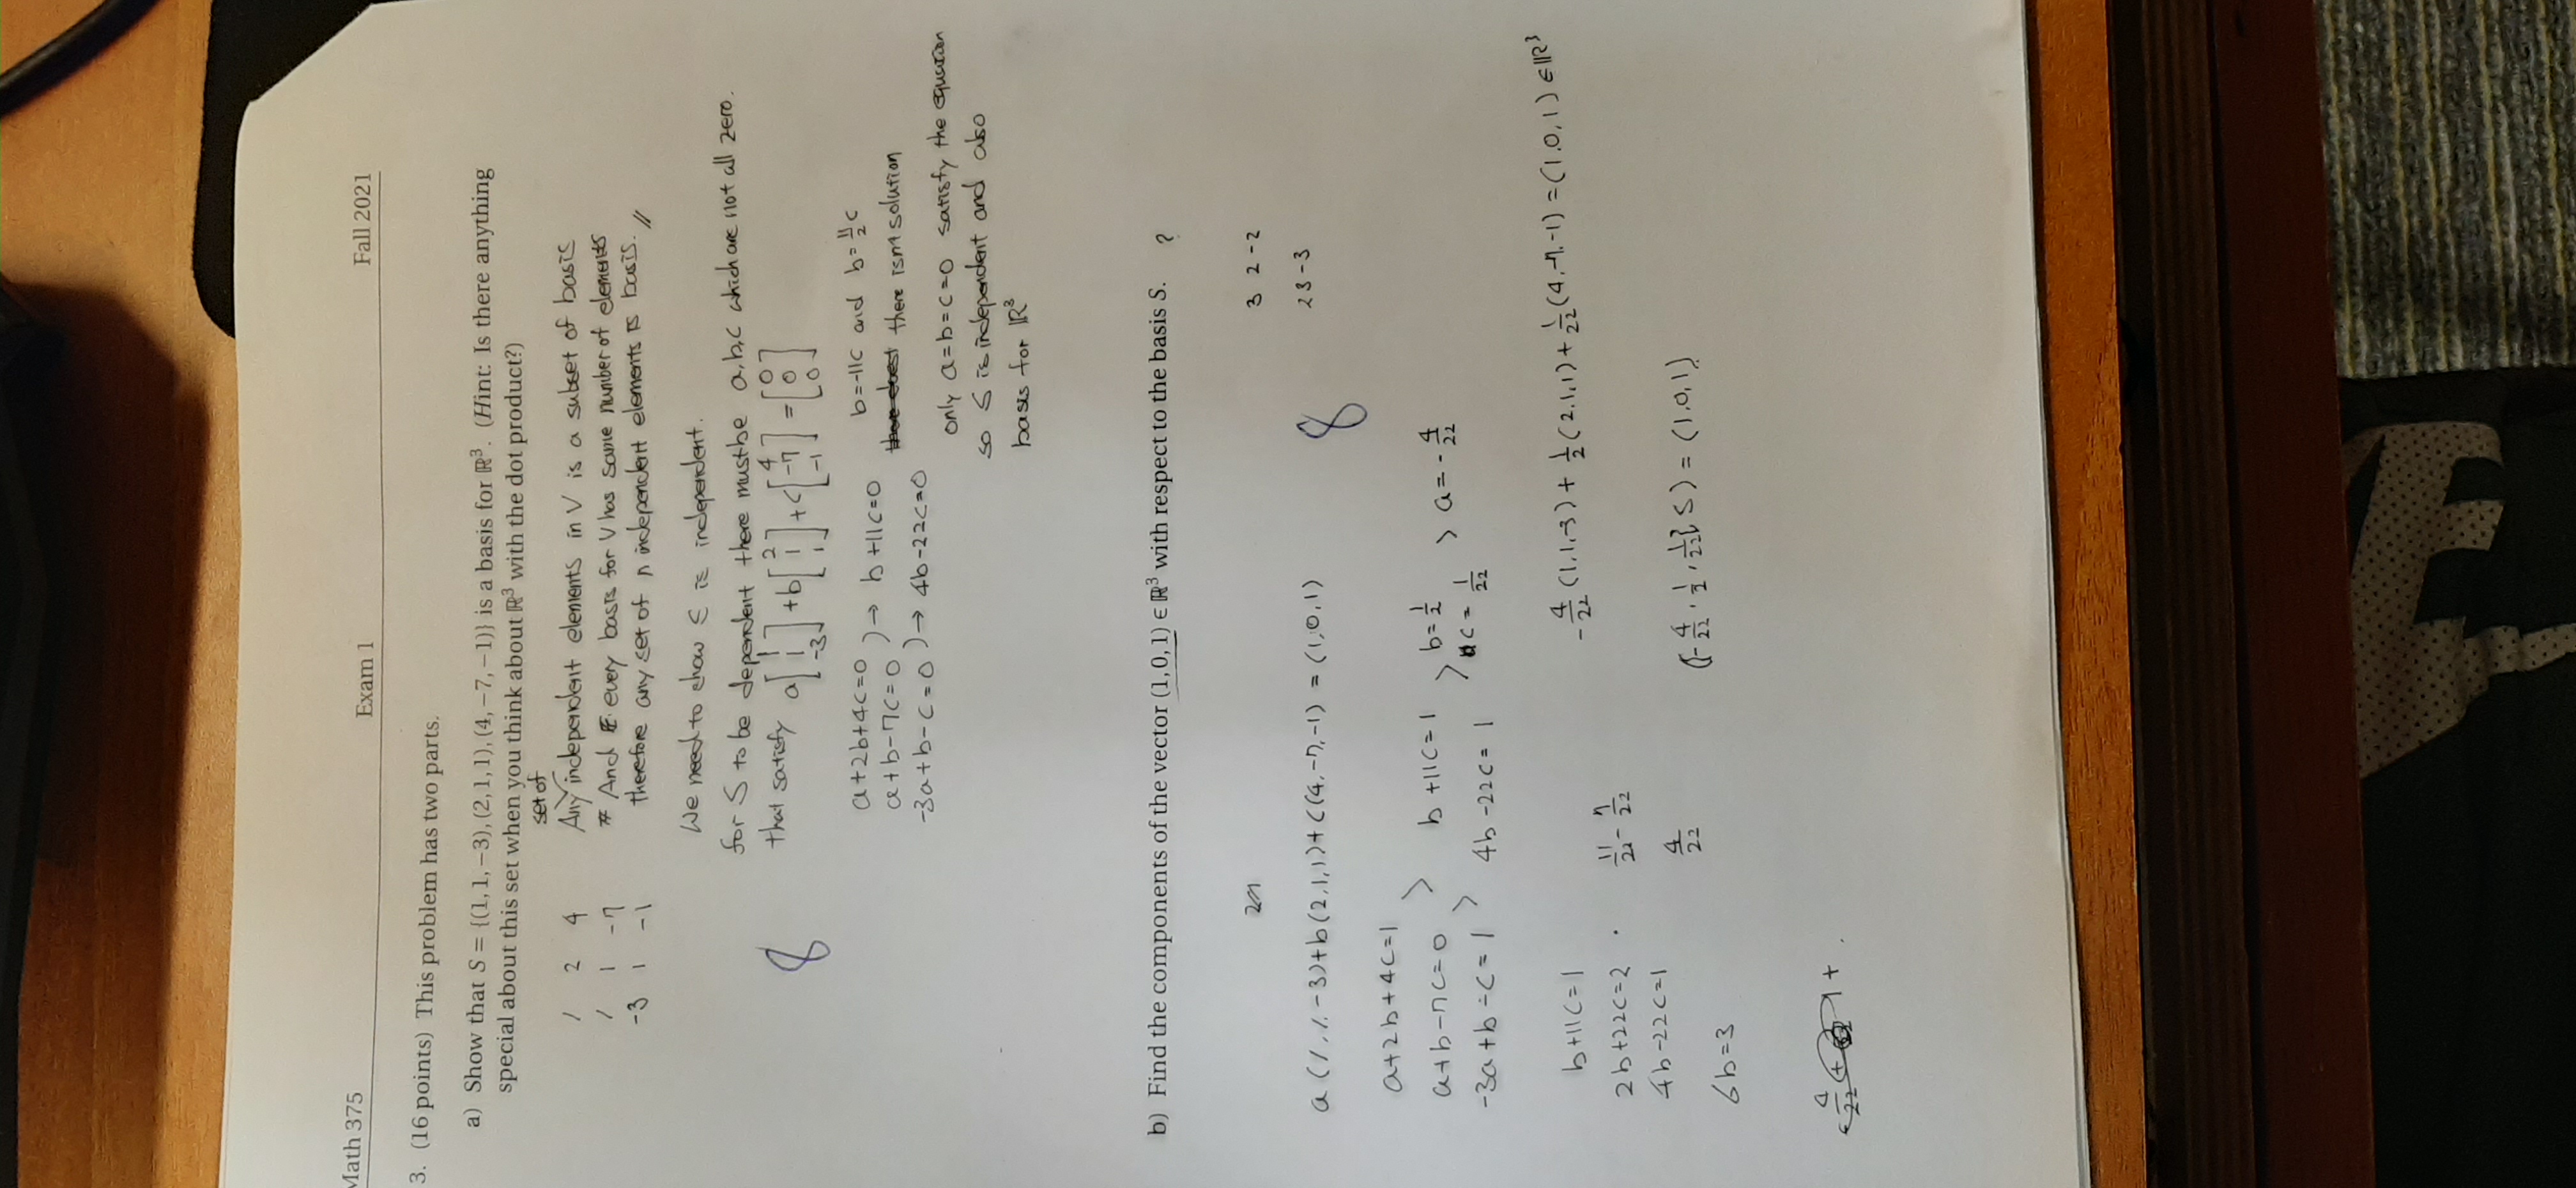 Math 375 Exam 1 Fall 2021
3. (16 points) This problem has two parts.
a) Show that S = {(1,1,−3),(2,1,1),(4,−7,−1)} is a basis for ℝ³. (Hint: Is there anything
special about this set when you think about ℝ³ with the dot product?)
set of
1 2 4 Any independent elements in V is a subset of basis
1 1 -7 * And every basis for V has same number of elements
-3 1 -1 therefore any set of n independent elements is basis. //
We need to show S is independent.
for S to be dependent there must be a,b,c which are not all zero.
that satisfy a[1 1 -3] + b[2 1 1] + c[4 -7 -1] = [0 0 0]
8
a+2b+4c=0
a+b-7c=0 ) → b+11c=0 b=-11c and b=11/2 c
-3a+b-c=0 ) → 4b-22c=0 there isn't solution
only a=b=c=0 satisfy the equation
so S is independent and also
basis for ℝ³
b) Find the components of the vector (1,0,1) ∈ ℝ³ with respect to the basis S. ?
3 2 -2
2 3 -3
a(1,1,-3)+b(2,1,1)+c(4,-7,-1) = (1,0,1) 8
a+2b+4c=1
a+b-7c=0 > b+11c=1 > b=1/2 > a=-4/22
-3a+b-c=1 > 4b-22c=1 c=1/22
-4/22(1,1,-3)+1/2(2,1,1)+1/22(4,-7,-1)=(1,0,1) ∈ℝ³
b+11c=1
2b+22c=2 · 11/22 - 7/22
4b-22c=1
4/22 ({-4/22, 1/2, 1/22} S) = (1,0,1)
6b=3